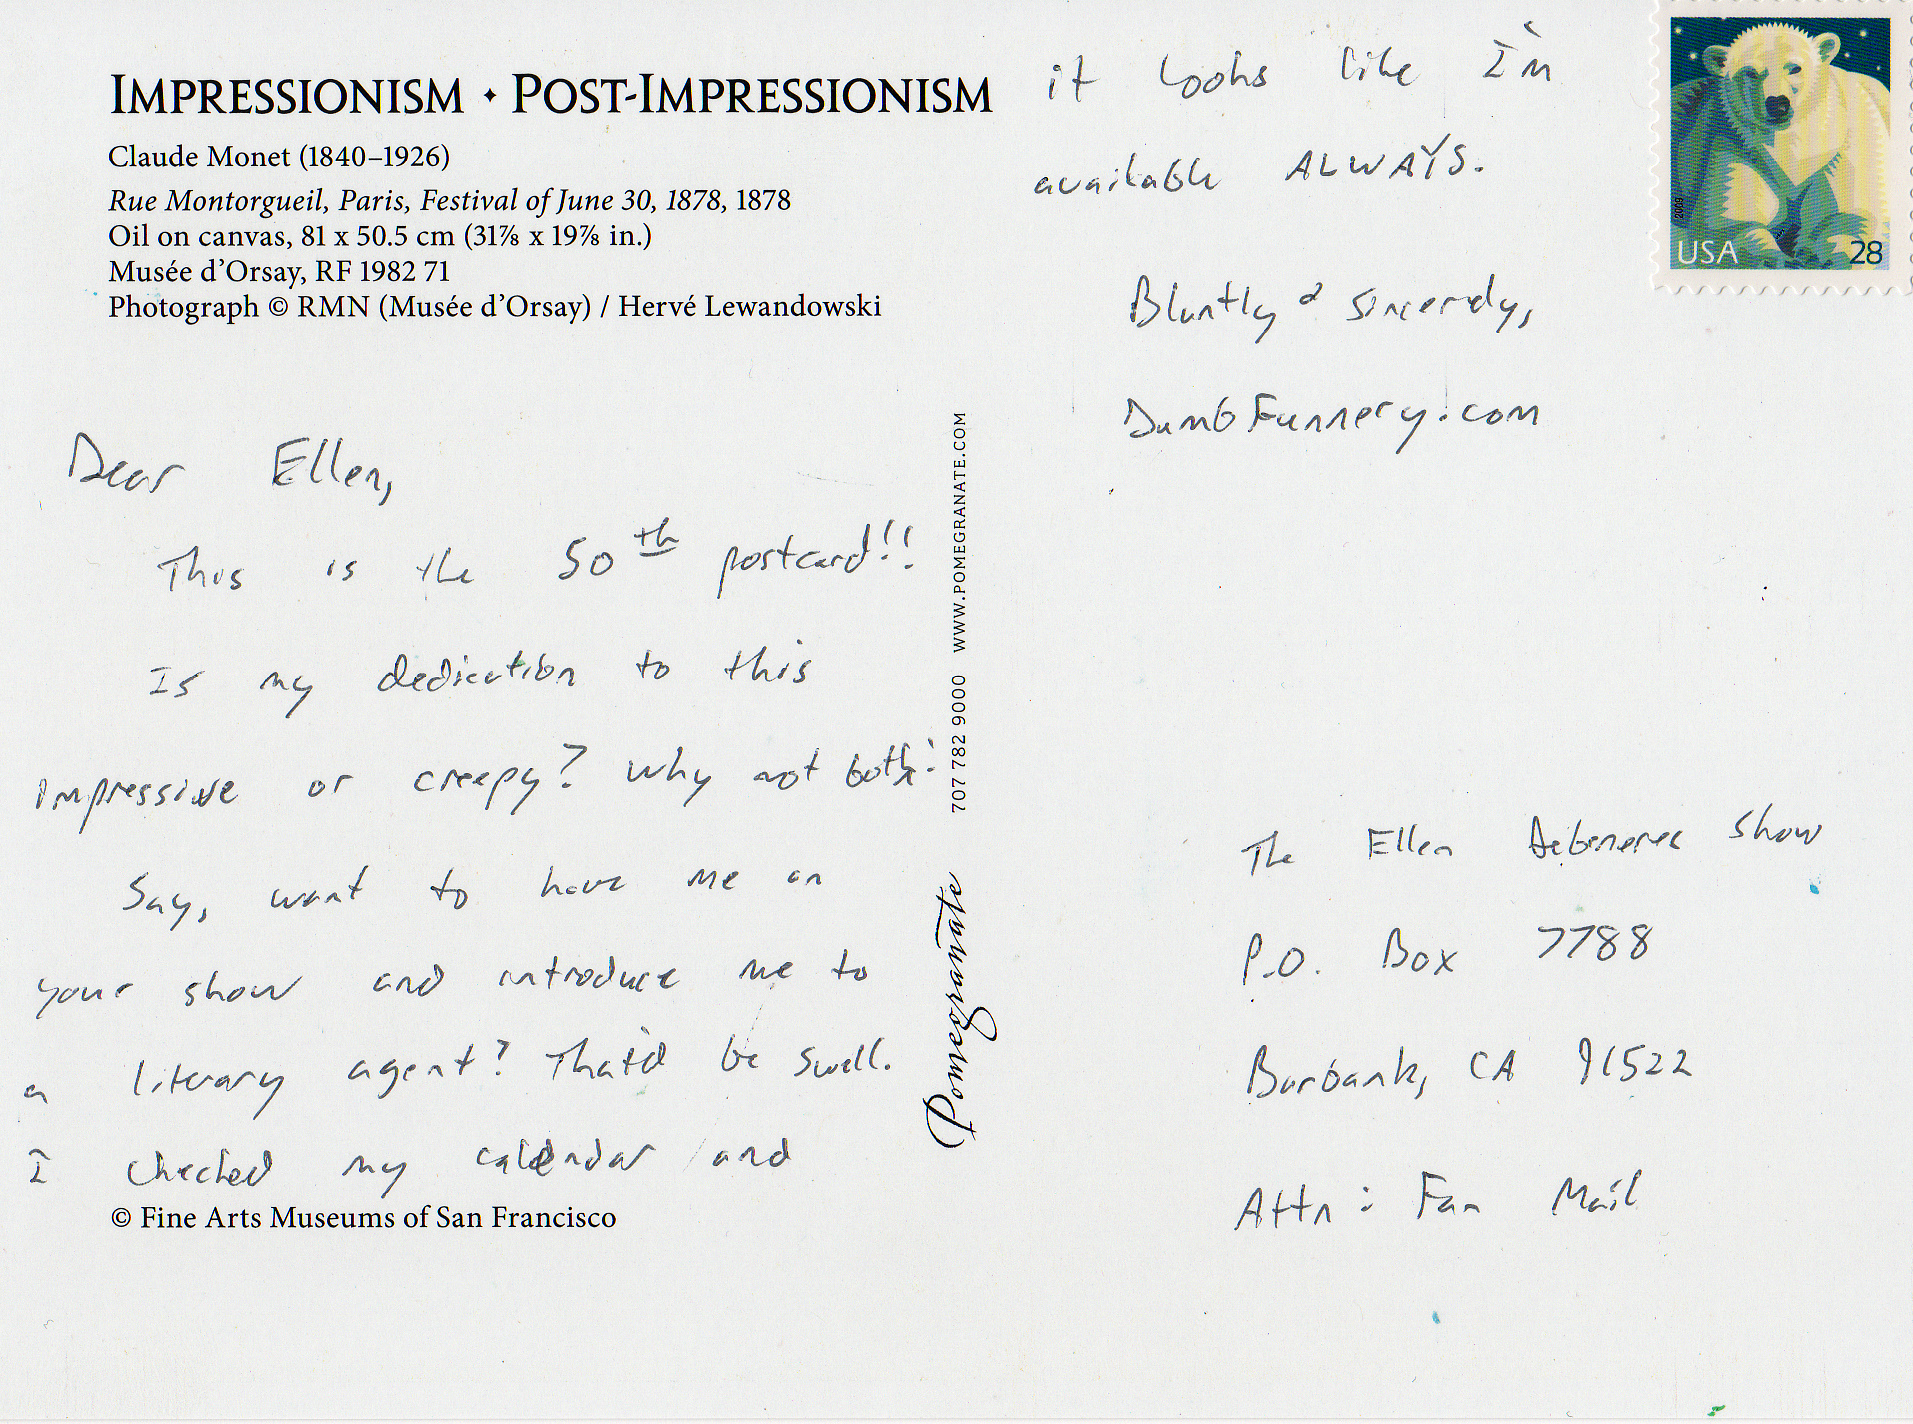 IMPRESSIONISM ♦ POST-IMPRESSIONISM
Claude Monet (1840–1926)
Rue Montorgueil, Paris, Festival of June 30, 1878, 1878
Oil on canvas, 81 x 50.5 cm (31⅞ x 19⅞ in.)
Musée d'Orsay, RF 1982 71
Photograph © RMN (Musée d'Orsay) / Hervé Lewandowski
Dear Ellen,
This is the 50th postcard!!
Is my dedication to this
impressive or creepy? Why not both!
Say, want to have me on
your show and introduce me to
a literary agent? That'd be swell.
I checked my calendar and
© Fine Arts Museums of San Francisco
707 782 9000 WWW.POMEGRANATE.COM
Pomegranate
it looks like I'm
available ALWAYS.
Bluntly & Sincerely,
DumbFunnery.com
2009
USA 28
The Ellen Show
P.O. Box 7788
Burbank, CA 91522
Attn: Fan Mail